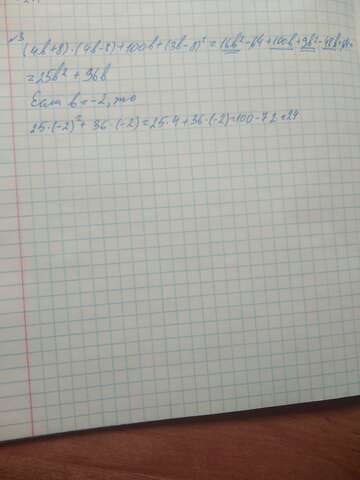 №3
(4b+8)·(4b-8)+100b+(3b-8)² = 16b²-64+100b+9b²-48b+64=
=25b² + 96b
Если b=-2, то
25·(-2)²+ 36·(-2)=25·4+36·(-2)=100-72=24